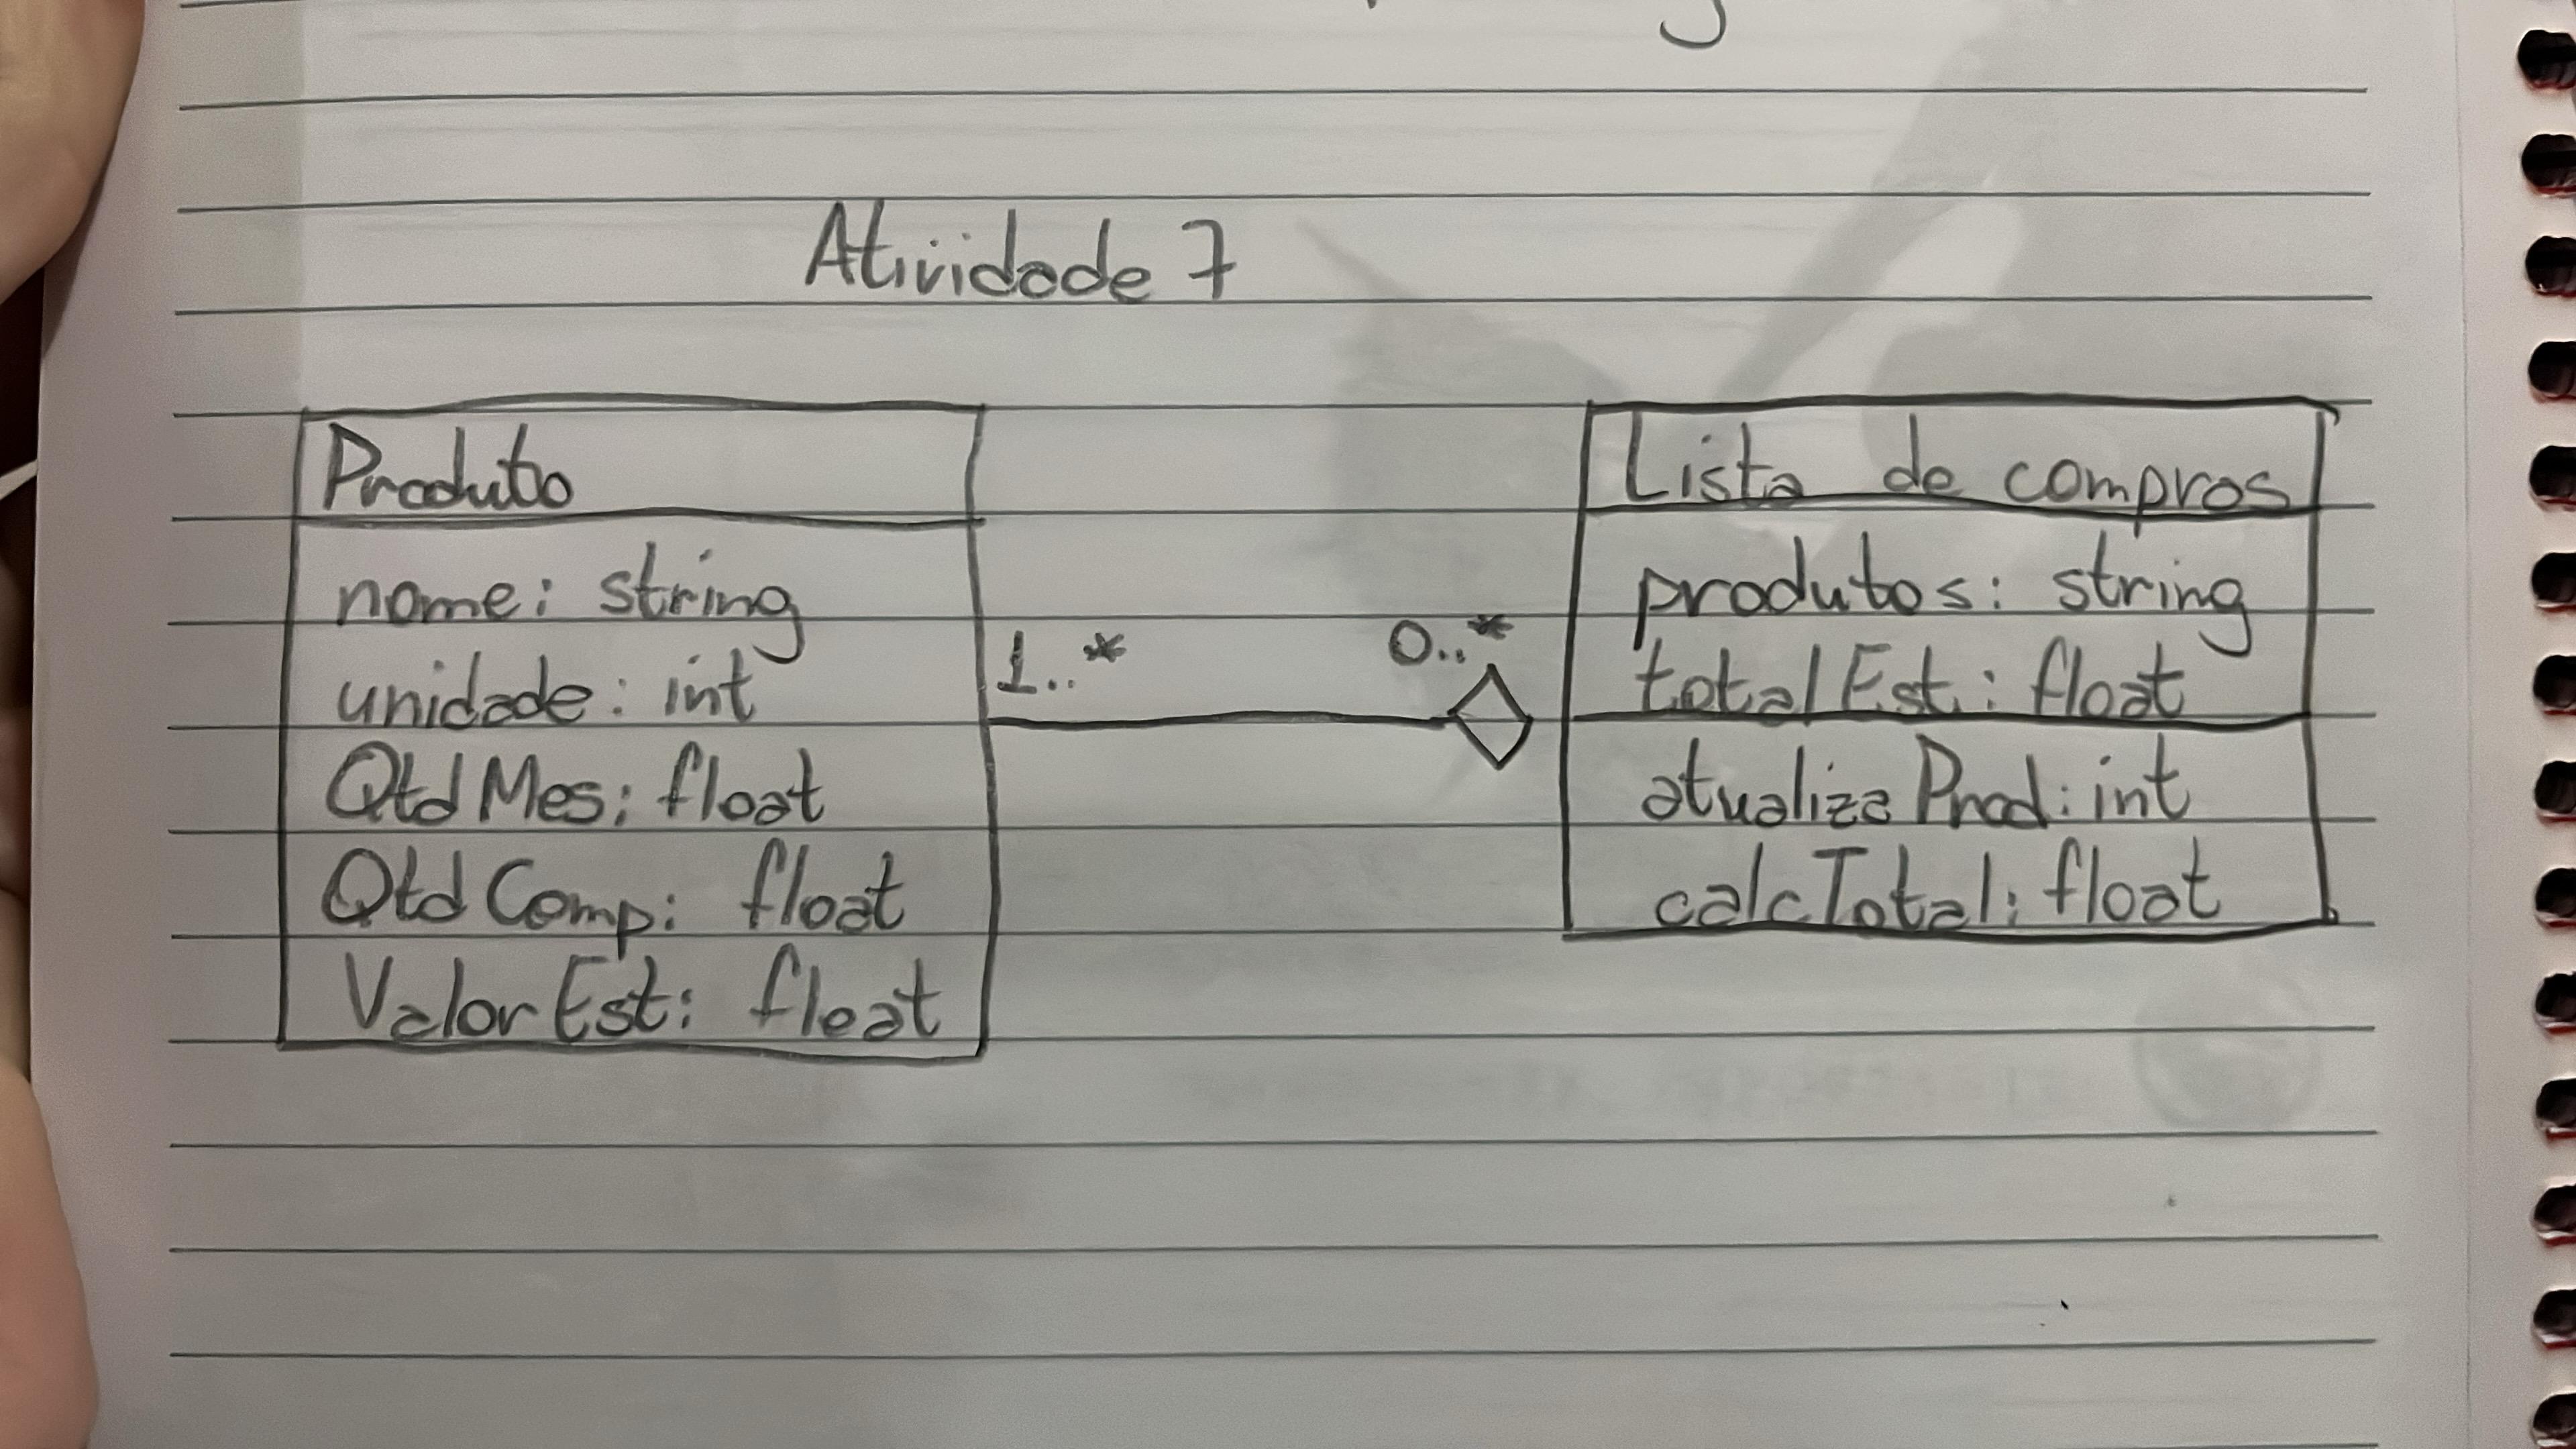 Atividade 7
Produto
nome: string
unidade: int
QtdMes: float
QtdComp: float
ValorEst: float
1..*
0..*
Lista de compras
produtos: string
totalEst: float
atualizaProd: int
calcTotal: float